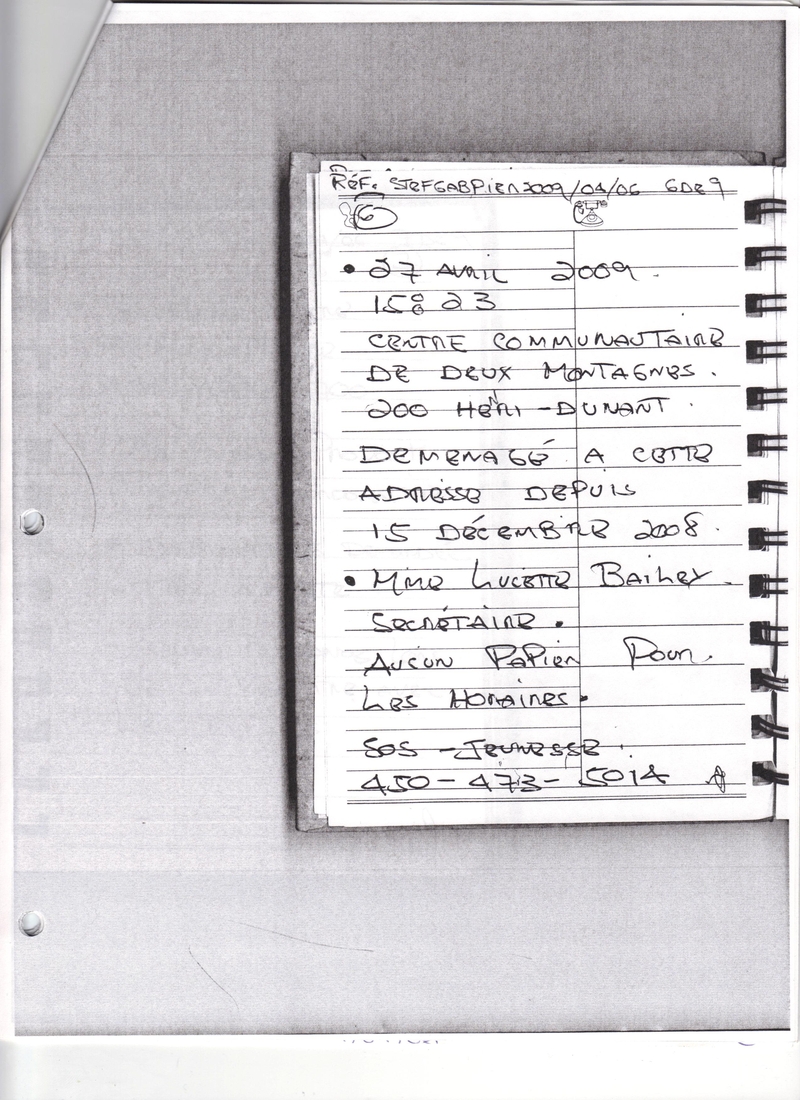 RÉF. STEFGABPIER2009/04/06 6 DE 9
6
• 27 AVRIL 2009.
15:23
CENTRE COMMUNAUTAIRE
DE DEUX MONTAGNES.
200 HENRI-DUNANT.
DEMENAGÉ A CETTE
ADRESSE DEPUIS
15 DÉCEMBRE 2008.
• Mme LUCETTE BAILEY.
SECRÉTAIRE.
AUCUN PAPIER POUR.
LES HORAIRES.
SOS - JEUNESSE.
450-473-5014